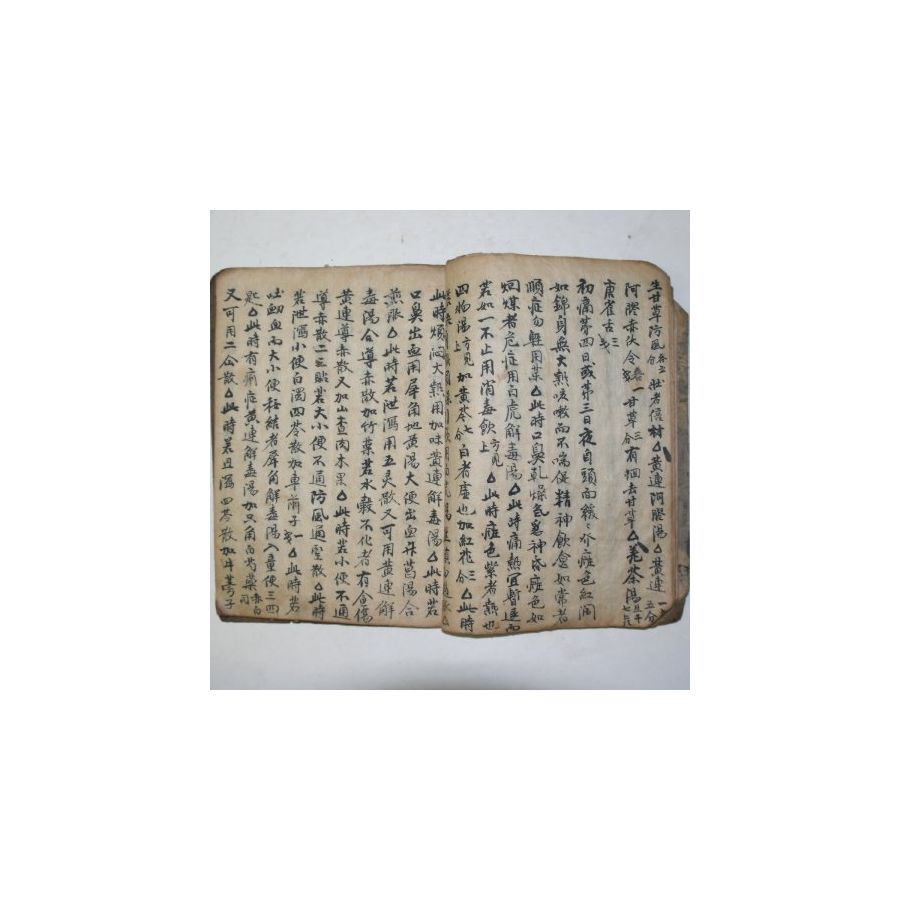 生甘草防風各五分 壯者倍材△黃連阿膠湯△黃連一戔五分
阿膠赤伏令各一戔 甘草三分 有徊去甘草△羌茶湯
東雀舌三戔
初痛第四日或第三日夜自頭面緩緩亦疹色紅潤
如錦與無大熱咳嗽而不喘促精神飮食如常者
順症勿輕用藥△此時口鼻乾燥色惡神昏疹色如
烟煤者危症用白虎解毒湯△此時痛熱宜暫退而
若如一不止用消毒飮方見上△此時疹色紫者熱也
四物湯方見上加黃芩七分白者虛也加紅花三分△此時
此時煩悶大熱用加味黃連解毒湯△此時若
口鼻出血用犀角地黃湯大便出血升葛湯合
煎服△此時若泄瀉用五灵散又可用黃連解
毒湯合導赤散加竹葉若水穀不化者有食傷
黃連導赤散又加山査肉木果△此時若小便不通
導赤散二三貼若大小便不通防風通聖散△此時
若泄瀉小便白濁四苓散加車前子一戔△此時若
吐衂血而大小便秘結者犀角解毒湯入童便三四
匙△此時有痢症黃連解毒湯加只角白芍藥
又可用二令散△此時若且瀉四苓散加牛蒡子